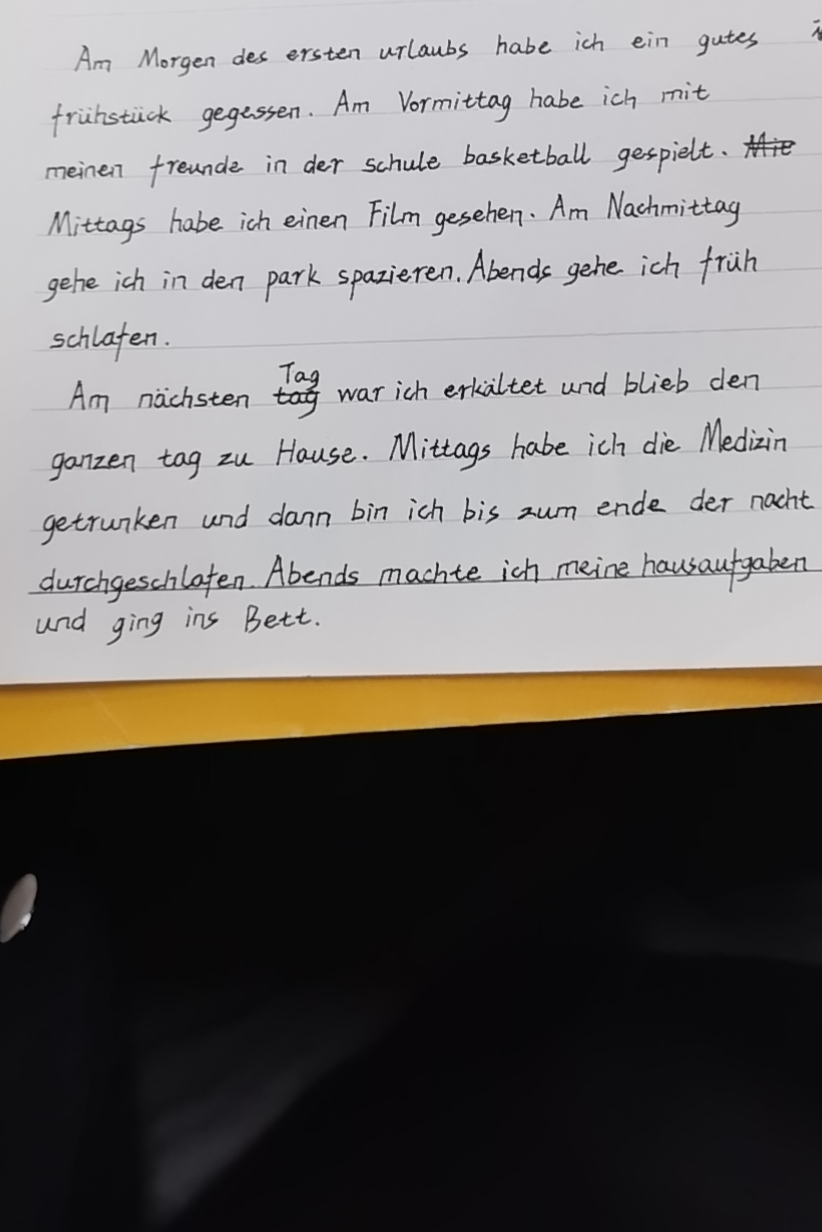 Am Morgen des ersten urlaubs habe ich ein gutes
frühstück gegessen. Am Vormittag habe ich mit
meinen freunde in der schule basketball gespielt. Mie
Mittags habe ich einen Film gesehen. Am Nachmittag
gehe ich in den park spazieren. Abends gehe ich früh
schlafen.
Tag
Am nächsten tag war ich erkältet und blieb den
ganzen tag zu Hause. Mittags habe ich die Medizin
getrunken und dann bin ich bis zum ende der nacht
durchgeschlafen. Abends machte ich meine hausaufgaben
und ging ins Bett.